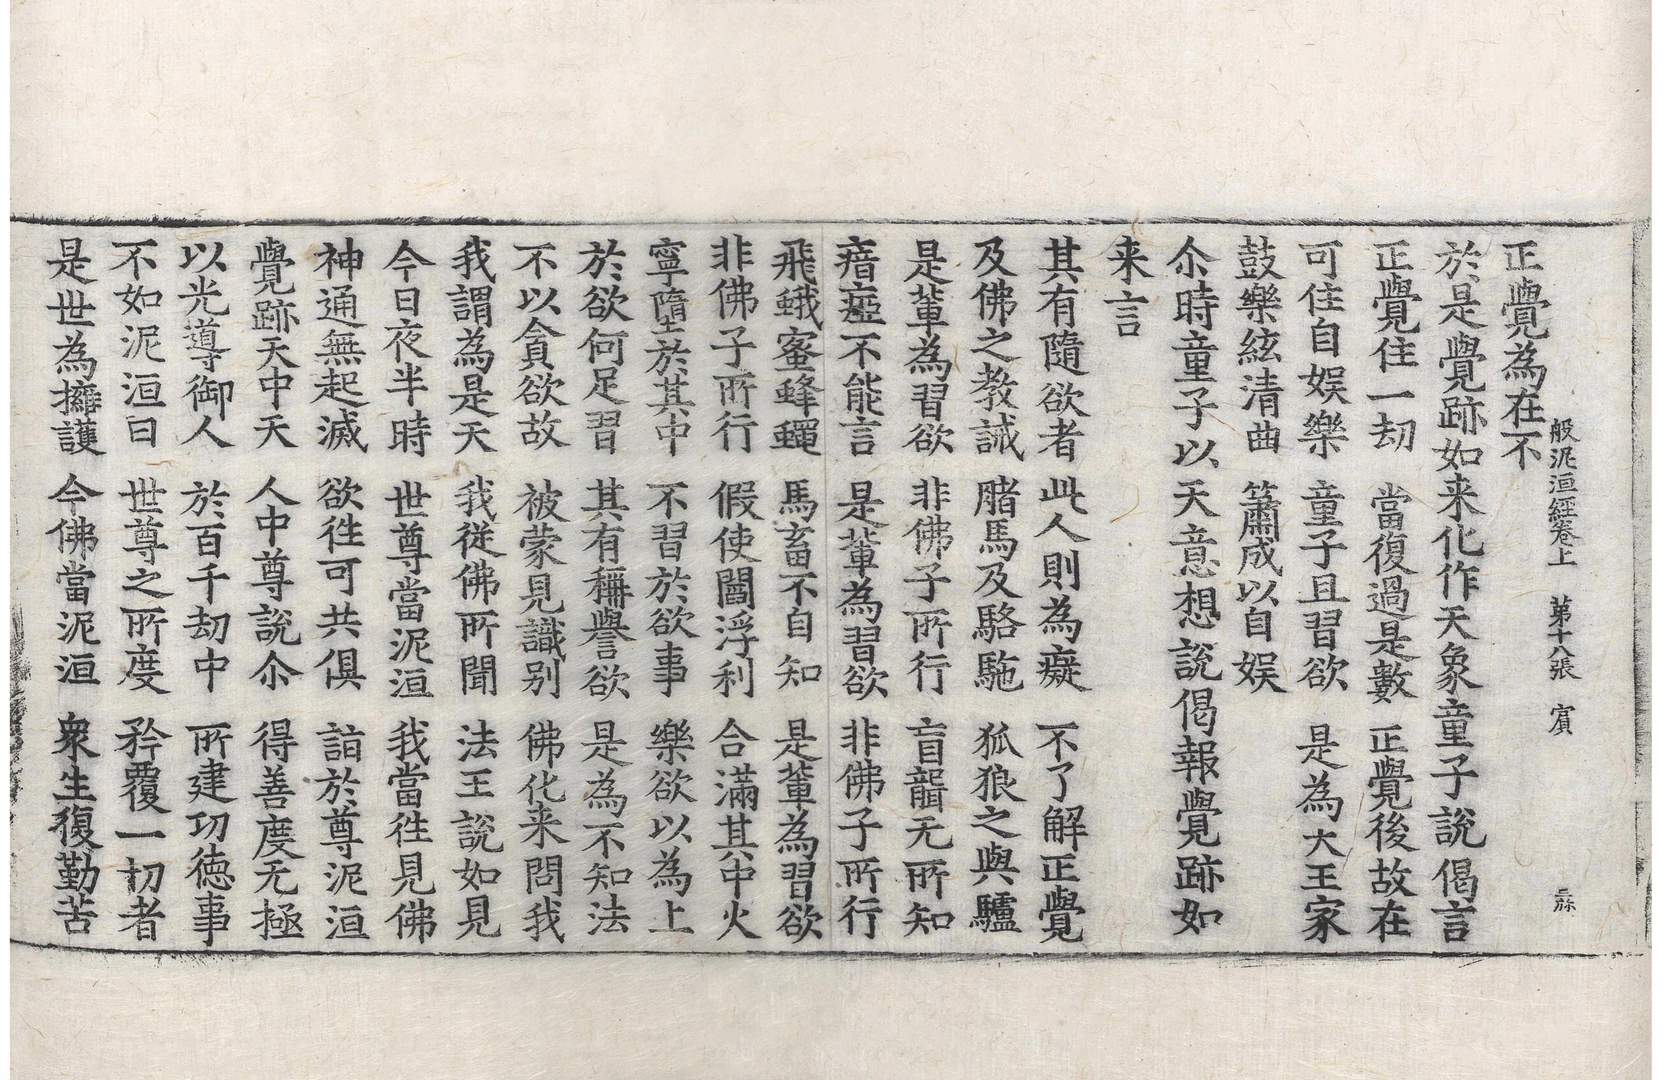 般泥洹經卷上 第十八張 賔
正覺為在不
於是覺跡如来化作天象童子說偈言
正覺住一劫 當復過是數 正覺後故在
可住自娛樂 童子且習欲 是為大王家
鼓樂絃清曲 簫成以自娱
尒時童子以天意想說偈報覺跡如
来言
其有隨欲者 此人則為癡 不了解正覺
及佛之教誡 賭馬及駱駞 狐狼之與驢
是輩為習欲 非佛子所行 盲聾无所知
瘖瘂不能言 是輩為習欲 非佛子所行
飛蛾蜜蜂蠅 馬畜不自知 是輩為習欲
非佛子所行 假使閻浮利 合滿其中火
寧墮於其中 不習於欲事 樂欲以為上
於欲何足習 其有稱譽欲 是為不知法
不以貪欲故 被蒙見識别 佛化来問我
我謂為是天 我從佛所聞 法王說如見
今日夜半時 世尊當泥洹 我當往見佛
神通無起滅 欲往可共俱 詣於尊泥洹
覺跡天中天 人中尊說尒 得善度无極
以光導御人 於百千劫中 所建功德事
不如泥洹曰 世尊之所度 矜覆一切者
是世為擁護 今佛當泥洹 衆生復勤苦